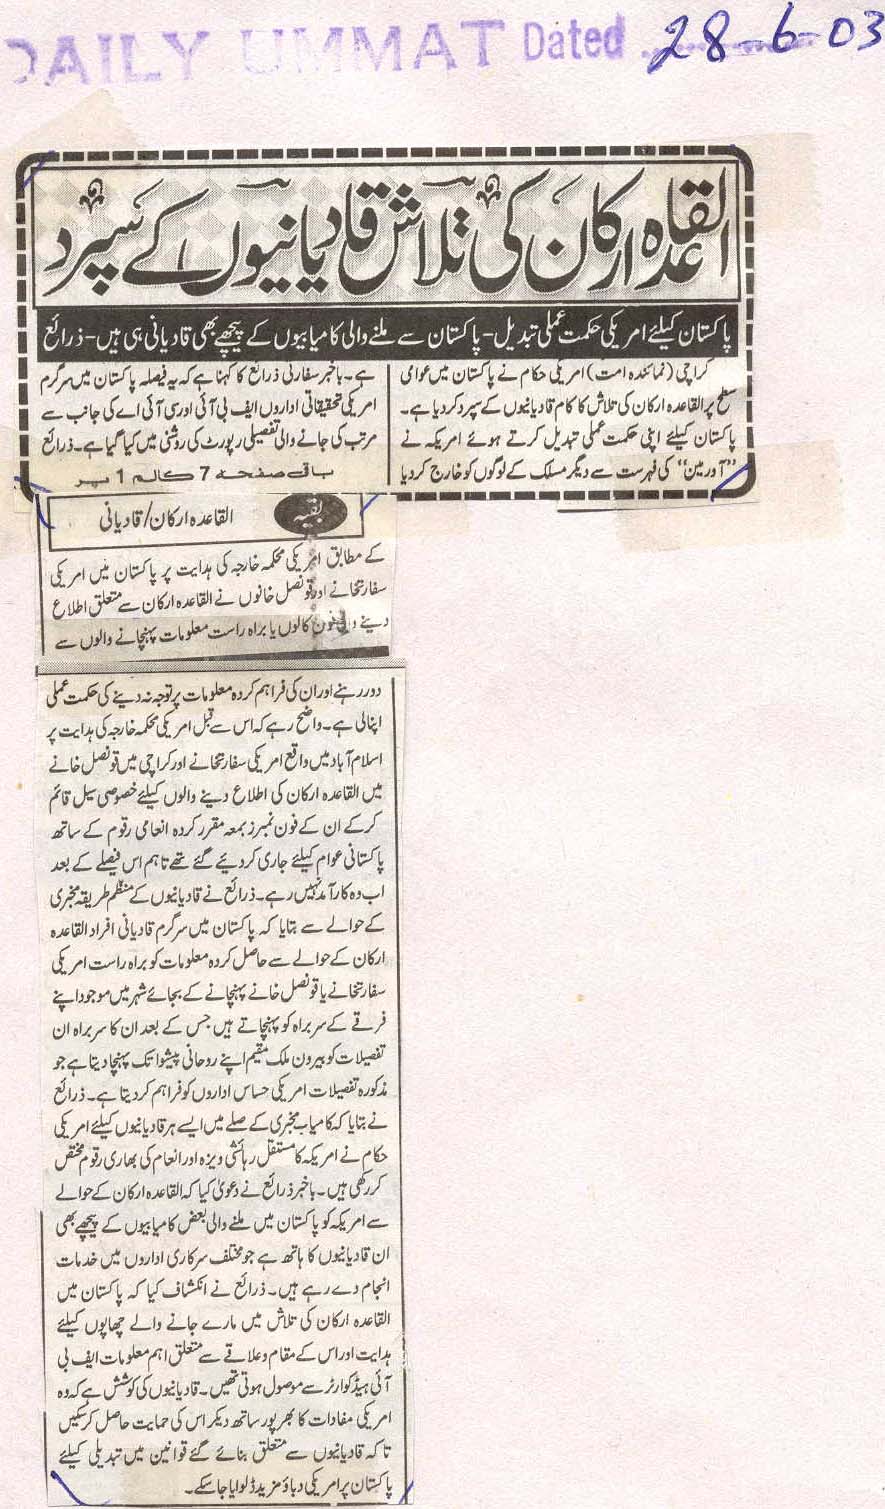 DAILY UMMAT Dated 28-6-03
القاعدہ ارکان کی تلاش قادیانیوں کے سپرد
پاکستان کیلئے امریکی حکمت عملی تبدیل-پاکستان سے ملنے والی کامیابیوں کے پیچھے بھی قادیانی ہی ہیں-ذرائع
کراچی (نمائندہ امت) امریکی حکام نے پاکستان میں عوامی
سطح پر القاعدہ ارکان کی تلاش کا کام قادیانیوں کے سپرد کر دیا ہے۔
پاکستان کیلئے اپنی حکمت عملی تبدیل کرتے ہوئے امریکہ نے
”آور مین“ کی فہرست سے دیگر مسلک کے لوگوں کو خارج کر دیا
ہے۔ باخبر سفارتی ذرائع کا کہنا ہے کہ یہ فیصلہ پاکستان میں سرگرم
امریکی تحقیقاتی اداروں ایف بی آئی اور سی آئی اے کی جانب سے
مرتب کی جانے والی تفصیلی رپورٹ کی روشنی میں کیا گیا ہے۔ ذرائع
باقی صفحہ 7 کالم 1 پر
بقیہ القاعدہ ارکان/قادیانی
کے مطابق امریکی محکمہ خارجہ کی ہدایت پر پاکستان میں امریکی
سفارتخانے اور قونصل خانوں نے القاعدہ ارکان سے متعلق اطلاع
دینے والی فون کالوں یا براہ راست معلومات پہنچانے والوں سے
دور رہنے اور ان کی فراہم کردہ معلومات پر توجہ نہ دینے کی حکمت عملی
اپنالی ہے۔ واضح رہے کہ اس سے قبل امریکی محکمہ خارجہ کی ہدایت پر
اسلام آباد میں واقع امریکی سفارتخانے اور کراچی میں قونصل خانے
میں القاعدہ ارکان کی اطلاع دینے والوں کیلئے خصوصی سیل قائم
کر کے ان کے فون نمبرز بمعہ مقرر کردہ انعامی رقوم کے ساتھ
پاکستانی عوام کیلئے جاری کر دیئے گئے تھے تاہم اس فیصلے کے بعد
اب وہ کارآمد نہیں رہے۔ ذرائع نے قادیانیوں کے منظم طریقہ مخبری
کے حوالے سے بتایا کہ پاکستان میں سرگرم قادیانی افراد القاعدہ
ارکان کے حوالے سے حاصل کردہ معلومات کو براہ راست امریکی
سفارتخانے یا قونصل خانے پہنچانے کے بجائے شہر میں موجود اپنے
فرقے کے سربراہ کو پہنچاتے ہیں جس کے بعد ان کا سربراہ ان
تفصیلات کو بیرون ملک مقیم اپنے روحانی پیشوا تک پہنچا دیتا ہے جو
مذکورہ تفصیلات امریکی حساس اداروں کو فراہم کر دیتا ہے۔ ذرائع
نے بتایا کہ کامیاب مخبری کے صلے میں ایسے ہر قادیانیوں کیلئے امریکی
حکام نے امریکہ کا مستقل رہائشی ویزہ اور انعام کی بھاری رقوم مختص
کر رکھی ہیں۔ باخبر ذرائع نے دعویٰ کیا کہ القاعدہ ارکان کے حوالے
سے امریکہ کو پاکستان میں ملنے والی بعض کامیابیوں کے پیچھے بھی
ان قادیانیوں کا ہاتھ ہے جو مختلف سرکاری اداروں میں خدمات
انجام دے رہے ہیں۔ ذرائع نے انکشاف کیا کہ پاکستان میں
القاعدہ ارکان کی تلاش میں مارے جانے والے چھاپوں کیلئے
ہدایت اور اس کے مقام و علاقے سے متعلق اہم معلومات ایف بی
آئی ہیڈ کوارٹر سے موصول ہوتی تھیں۔ قادیانیوں کی کوشش ہے کہ وہ
امریکی مفادات کا بھرپور ساتھ دیکر اس کی حمایت حاصل کر سکیں
تاکہ قادیانیوں سے متعلق بنائے گئے قوانین میں تبدیلی کیلئے
پاکستان پر امریکی دباؤ مزید ڈلوایا جا سکے۔